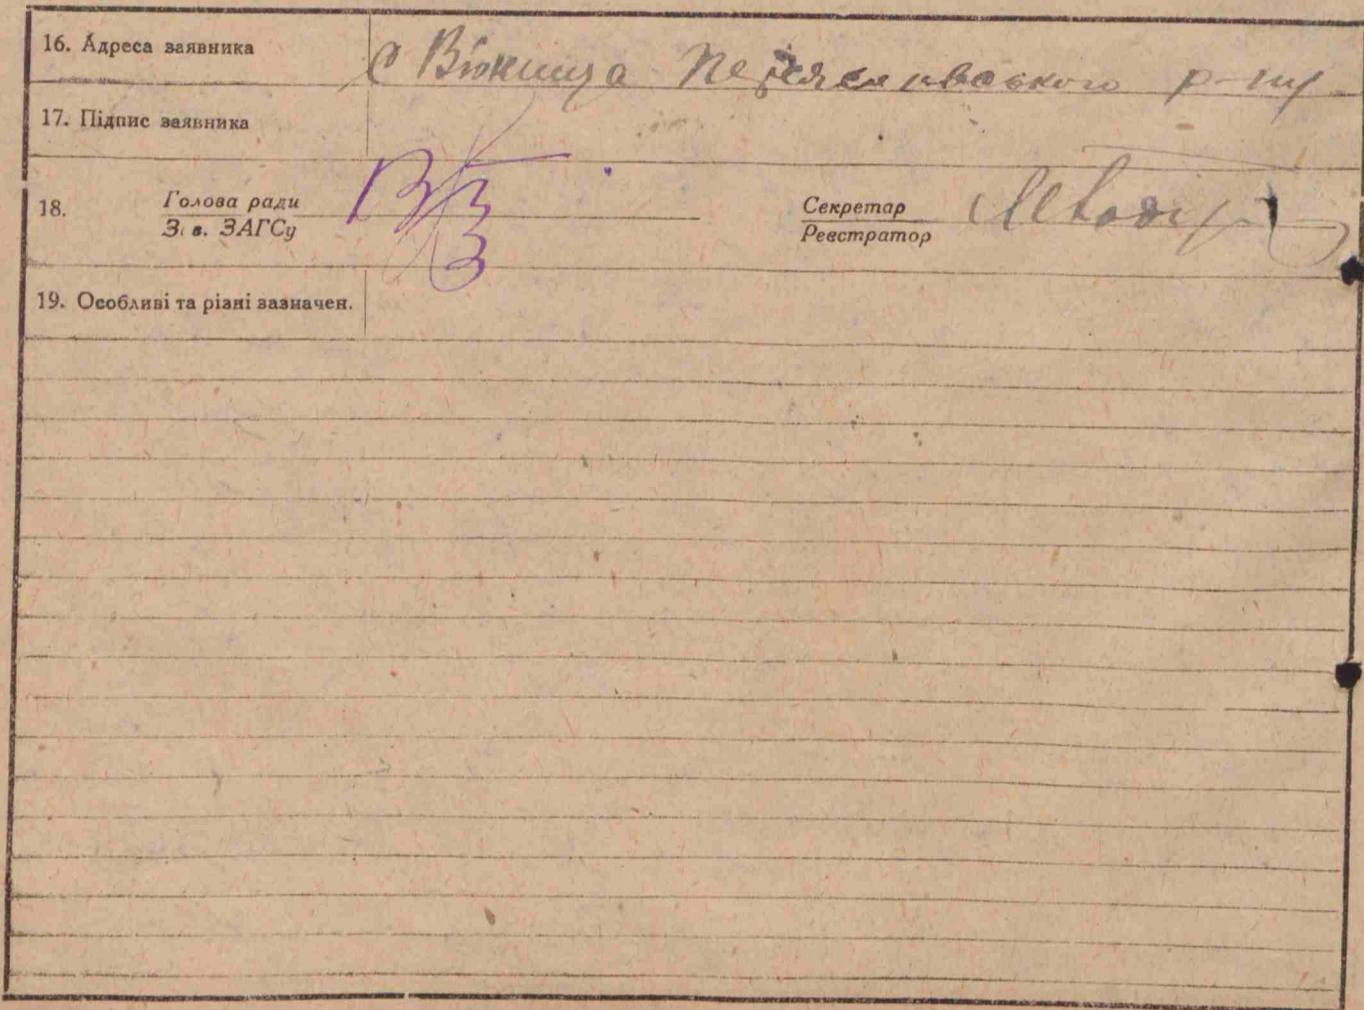 16. Адреса заявника с Вюнища Переяславського р-ну
17. Підпис заявника
18. Голова ради Секретар
Зав. ЗАГСу Реєстратор
19. Особливі та різні зазначен.